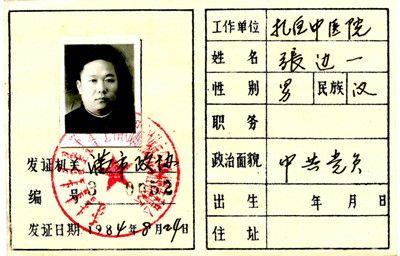 发证机关 满市政协
编号 3 0052
发证日期 1984年8月24日
工作单位 扎区中医院
姓名 張边一
性别 男 民族 汉
职务
政治面貌 中共党员
出生 年 月 日
住址